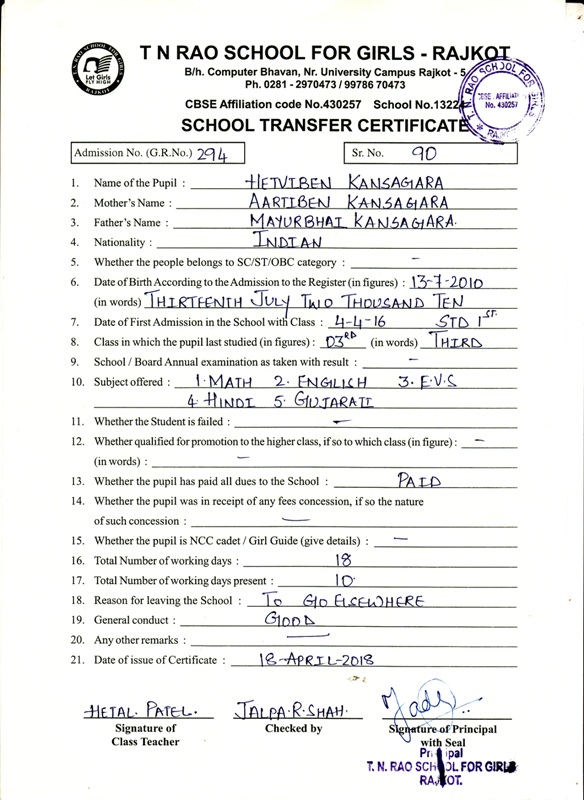 T. N. RAO SCHOOL FOR GIRLS
Let Girls
FLY HIGH
RAJKOT
T N RAO SCHOOL FOR GIRLS - RAJKOT
B/h. Computer Bhavan, Nr. University Campus Rajkot - 5
Ph. 0281 - 2970473 / 99786 70473
CBSE Affiliation code No.430257 School No.1322
T. N. RAO SCHOOL FOR GIRLS
CBSE. AFFILIATION
No. 430257
RAJKOT
SCHOOL TRANSFER CERTIFICATE
Admission No. (G.R.No.) 294 Sr. No. 90
1. Name of the Pupil : HETVIBEN KANSAGIARA
2. Mother's Name : AARTIBEN KANSAGIARA
3. Father's Name : MAYURBHAI KANSAGIARA.
4. Nationality : INDIAN
5. Whether the people belongs to SC/ST/OBC category : –
6. Date of Birth According to the Admission to the Register (in figures) : 13-7-2010
(in words) THIRTEENTH JULY TWO THOUSAND TEN
7. Date of First Admission in the School with Class : 4-4-16 STD 1ST.
8. Class in which the pupil last studied (in figures) : 03RD (in words) THIRD
9. School / Board Annual examination as taken with result : –
10. Subject offered : 1. MATH 2. ENGLISH 3. E.V.S
4. HINDI 5. GUJARATI
11. Whether the Student is failed : –
12. Whether qualified for promotion to the higher class, if so to which class (in figure) : –
(in words) : –
13. Whether the pupil has paid all dues to the School : PAID
14. Whether the pupil was in receipt of any fees concession, if so the nature
of such concession : —
15. Whether the pupil is NCC cadet / Girl Guide (give details) : –
16. Total Number of working days : 18
17. Total Number of working days present : 10
18. Reason for leaving the School : TO GO ELSEWHERE
19. General conduct : GOOD
20. Any other remarks : —
21. Date of issue of Certificate : 18-APRIL-2018
HETAL. PATEL. JALPA.R.SHAH.
Signature of Class Teacher Checked by Signature of Principal
with Seal
Principal
T. N. RAO SCHOOL FOR GIRLS
RAJKOT.